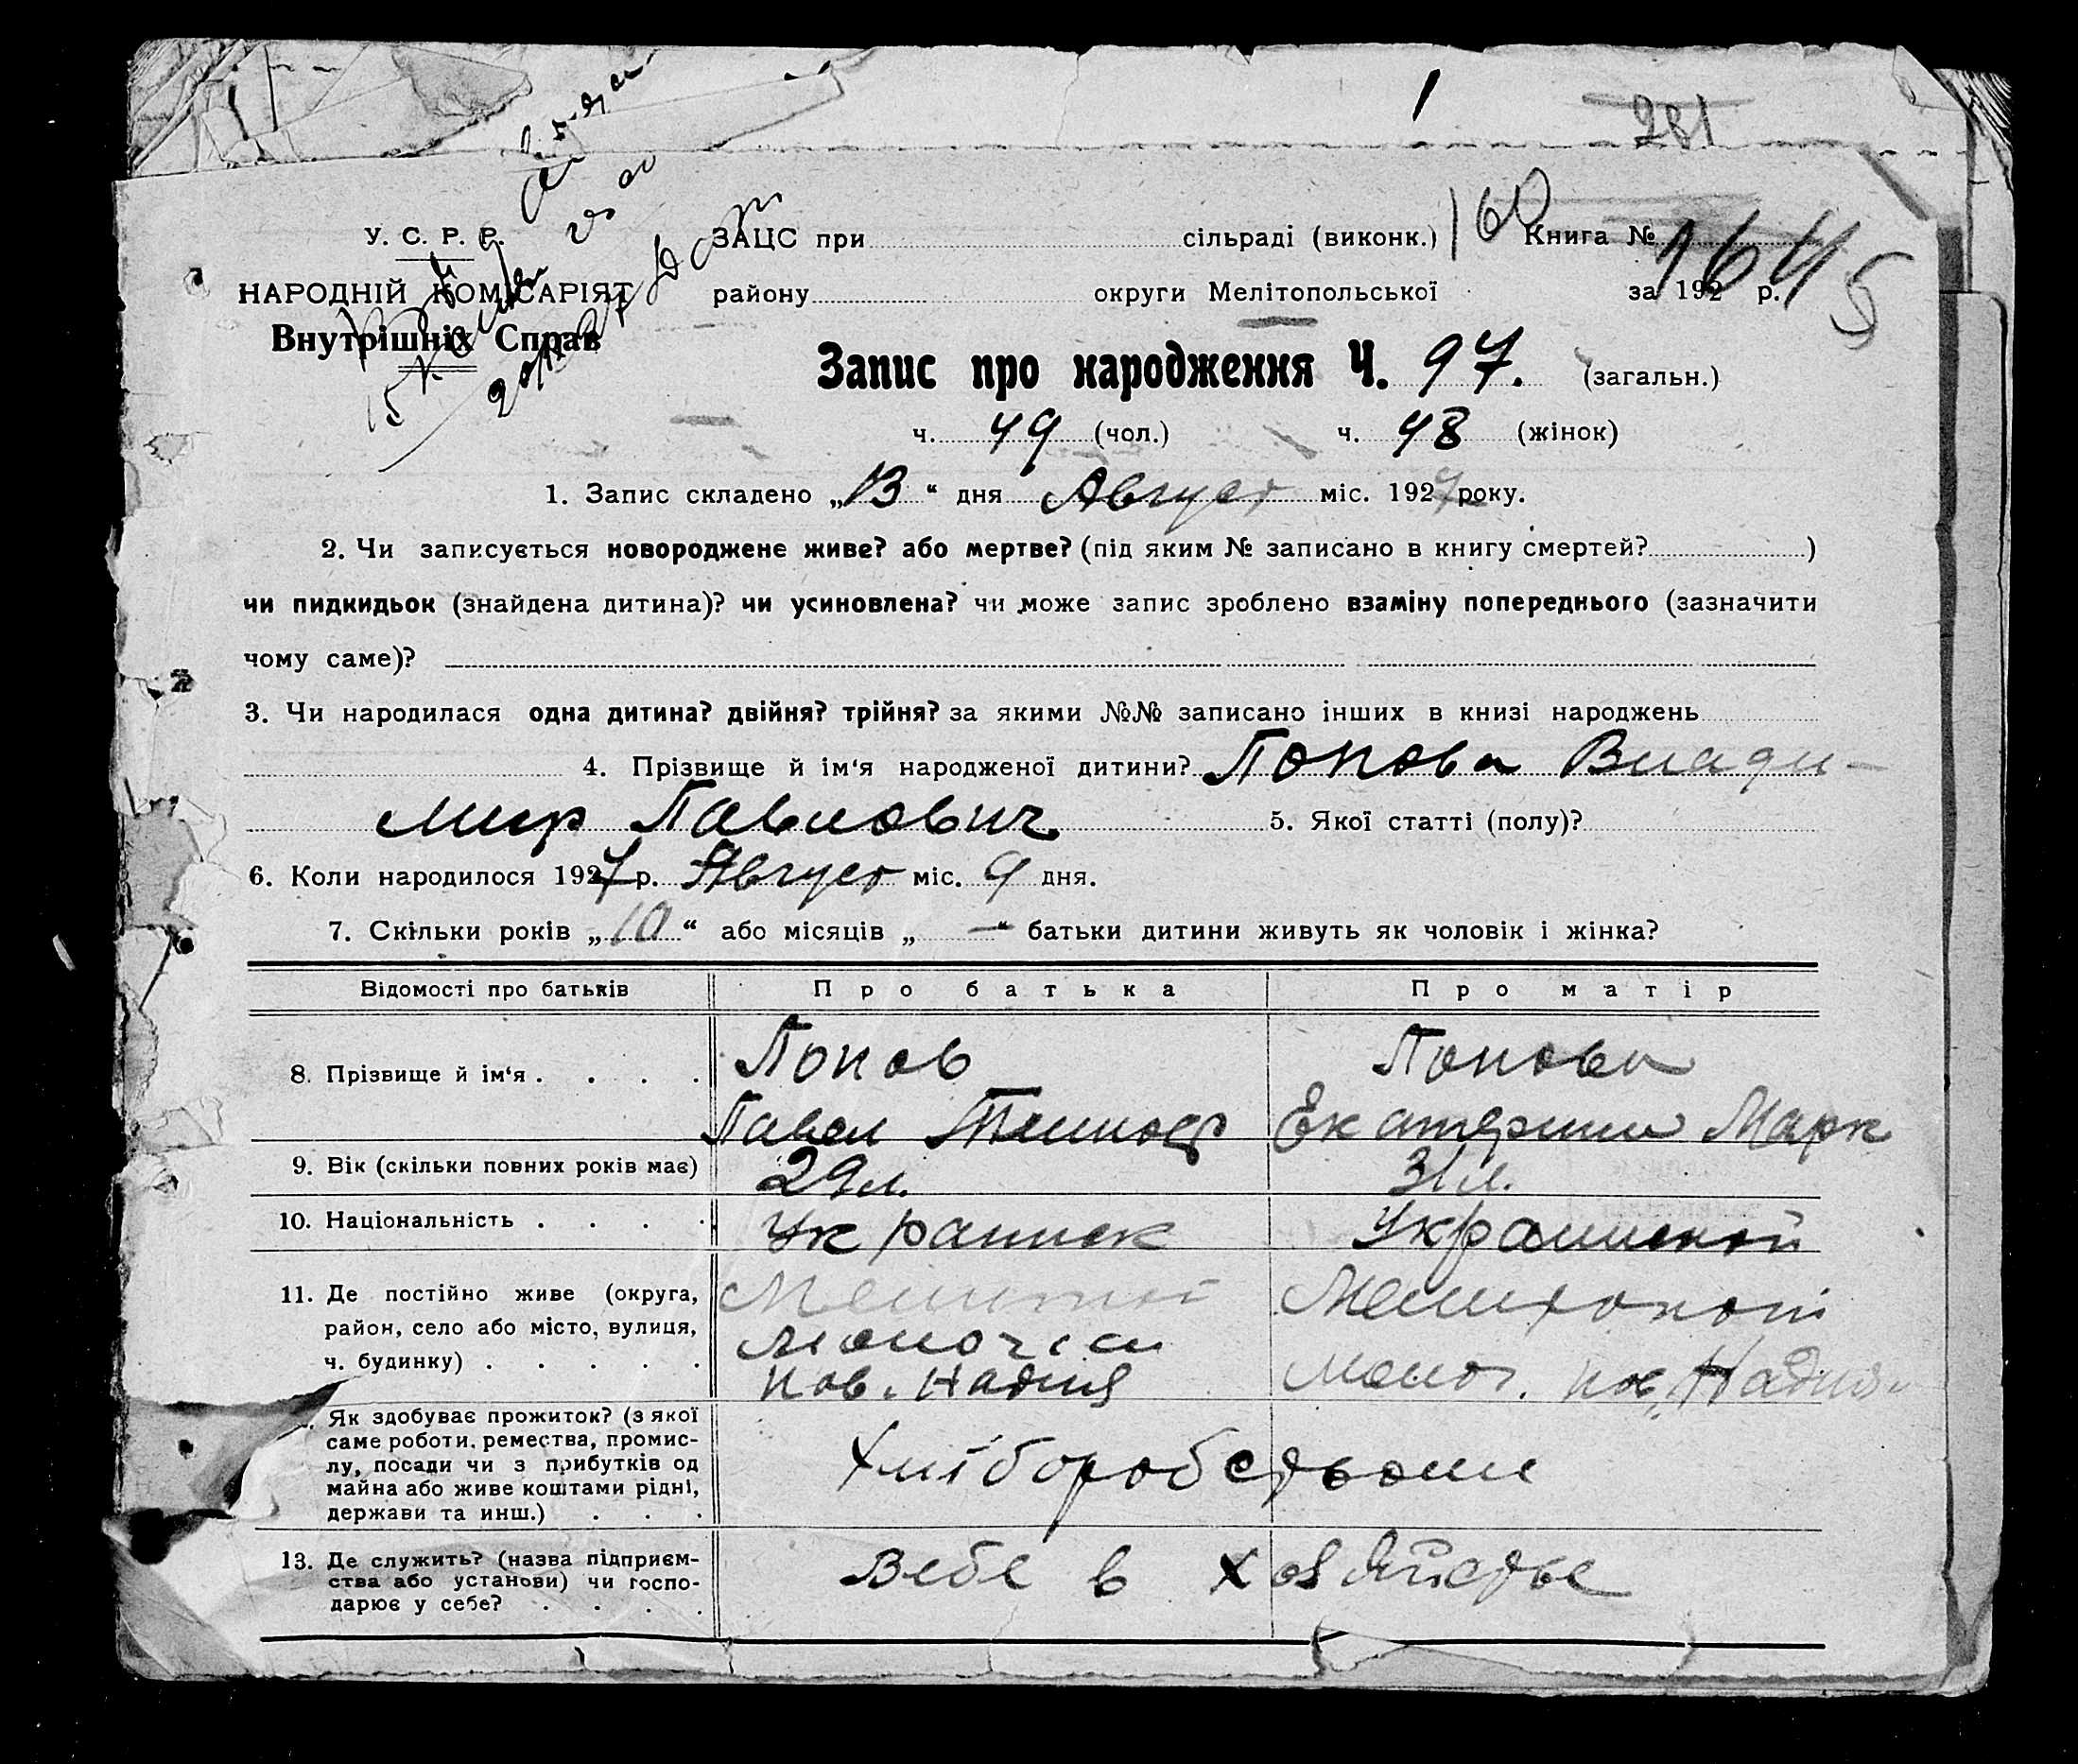 281
У. С. Р. Р.
НАРОДНІЙ КОМІСАРІЯТ
Внутрішніх Справ
ЗАЦС при сільраді (виконк.) 160 Книга № 1645
району округи Мелітопольської за 192 р.
Запис про народження Ч. 97. (загальн.)
ч. 49 (чол.) ч. 48 (жінок)
1. Запис складено „13“ дня Август міс. 1927 року.
2. Чи записується новороджене живе? або мертве? (під яким № записано в книгу смертей? )
чи пидкидьок (знайдена дитина)? чи усиновлена? чи може запис зроблено взаміну попереднього (зазначити
чому саме)?
3. Чи народилася одна дитина? двійня? трійня? за якими №№ записано інших в книзі народжень
4. Прізвище й ім‘я народженої дитини? Попова Влади-
мир Павлович 5. Якої статті (полу)?
6. Коли народилося 1927 р. Август міс. 9 дня.
7. Скільки років „10“ або місяців „—“ батьки дитини живуть як чоловік і жінка?
Відомості про батьків Про батька Про матір
8. Прізвище й ім‘я . . . . Попов Попова
Павел Екатерина Марк
9. Вік (скільки повних років має) 29 л. 31 л.
10. Національність . . . . Украинек Украинской
11. Де постійно живе (округа, Мелитопол
район, село або місто, вулиця,
ч. будинку) . . . . . Нов. Надия Нов. Надия
Як здобуває прожиток? (з якої
саме роботи, ремества, промис-
лу, посади чи з прибутків од
майна або живе коштами рідні,
держави та инш.) . . . Хліборобством
13. Де служить? (назва підприєм-
ства або установи) чи госпо-
дарює у себе? . . . . в хозяйстве